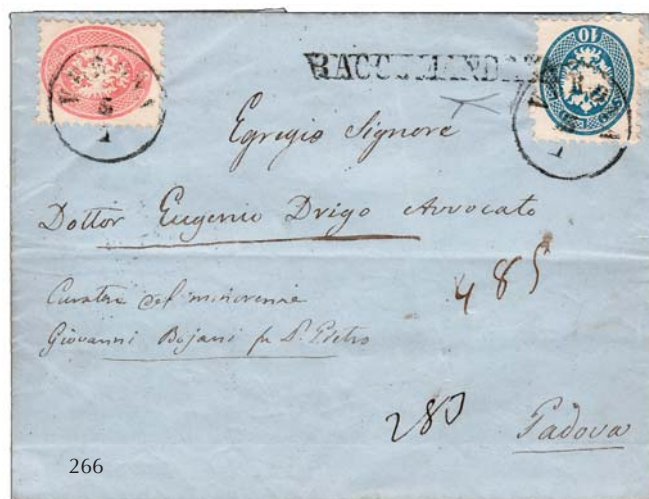 RACCOMANDATA
10
5
1
1
Egregio Signore
Dottor Eugenio Drigo Avvocato
Curatore del minorenne
Giovanni Bojani
485
283
Padova
266